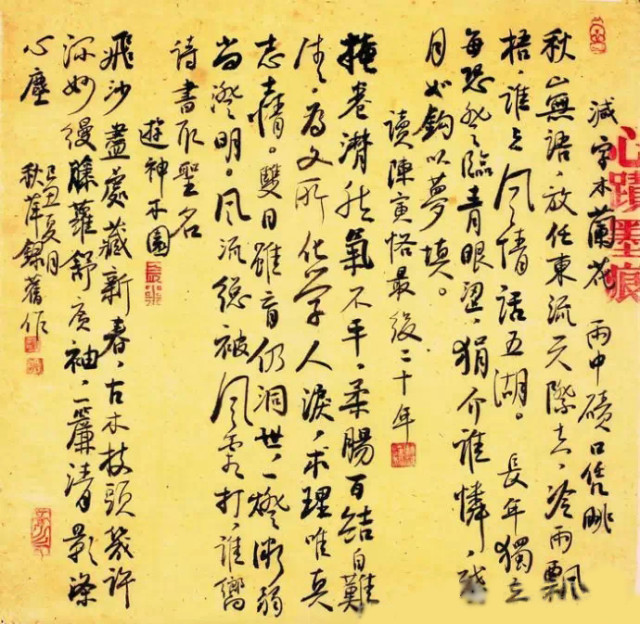 心蹟墨痕
減字木蘭花 雨中磧口凭眺
秋山無語，放任東流天際去，冷雨飄
梧，誰主風情話五湖。長年獨立
每恐登臨青眼望，狷介誰憐，殘
月如鈎以夢填。
讀陳寅恪最後二十年
掩卷潸然氣不平，柔腸百結自難
清，為文所化學人淚，求理唯真
志士情。雙目雖盲仍洞世，一燈漸弱
尚澄明。風流總被風雲打，誰嚮
詩書取聖名
遊神木園
飛沙盡處藏新春，古木枝頭幾許
深妙縵藤蘿舒廣袖，一簾清影滌
心塵
己丑夏月
秋萍錄舊作